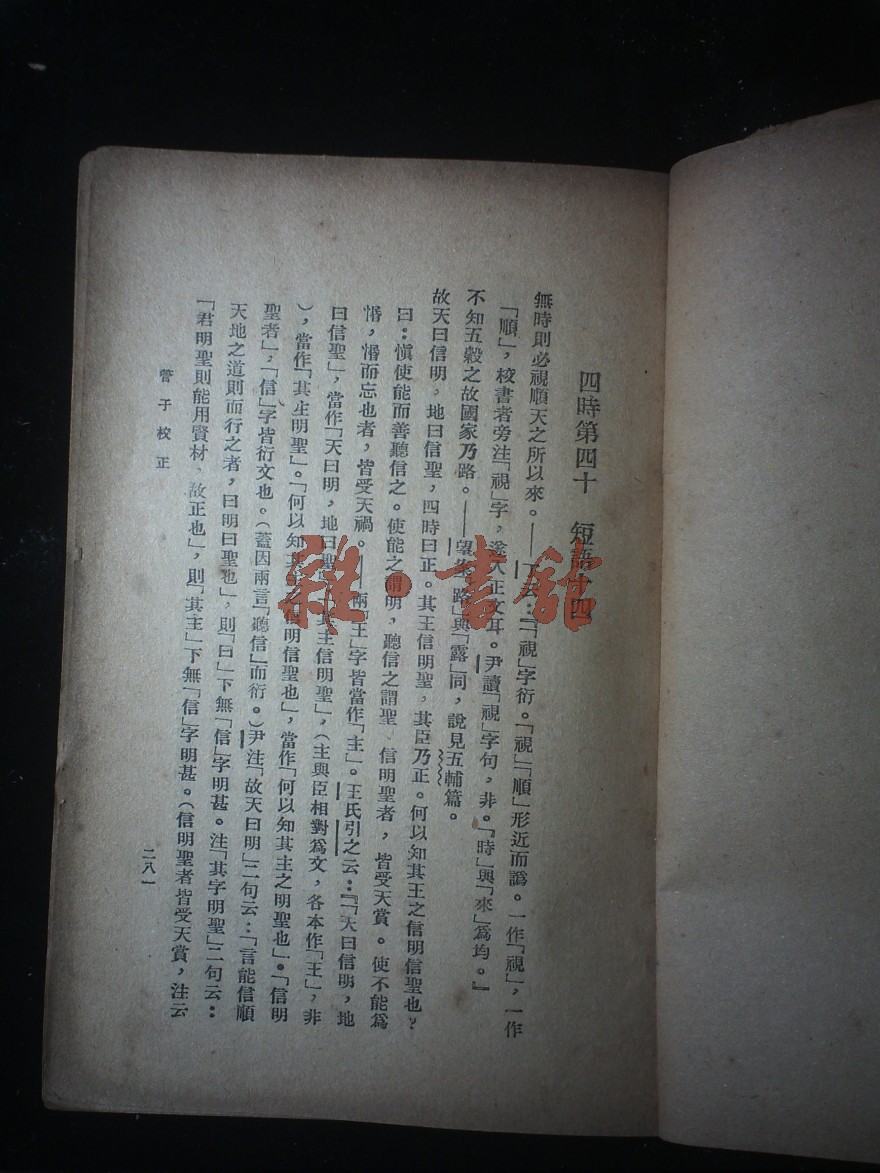 四時第四十　短語十四
無時則必視順天之所以來。——丁云：『「視」字衍。「視」「順」形近而譌。一作「視」，一作
「順」，校書者旁注「視」字，遂入正文耳。尹讀「視」字句，非。「時」與「來」為均。』
不知五穀之故國家乃路。——望案：「路」與「露」同，說見五輔篇。
故天曰信明，地曰信聖，四時曰正。其王信明聖，其臣乃正。何以知其王之信明信聖也？
曰：愼使能而善聽信之。使能之謂明，聽信之謂聖、信明聖者，皆受天賞。使不能為
惛，惛而忘也者，皆受天禍。——兩「王」字皆當作「主」。王氏引之云：『「天曰信明，地
曰信聖」，當作「天曰明，地曰聖」。「其主信明聖」，（主與臣相對為文，各本作「王」，非
），當作「其主明聖」。「何以知其主之信明信聖也」，當作「何以知其主之明聖也」。「信明
聖者」，「信」字皆衍文也。（蓋因兩言「聽信」而衍。）尹注「故天曰明」二句云：「言能信順
天地之道則而行之者，曰明曰聖也」，則「曰」下無「信」字明甚。注「其字明聖」二句云：
「君明聖則能用賢材，故正也」，則「其主」下無「信」字明甚。（信明聖者皆受天賞，注云
管子校正
二八一
雜·書館